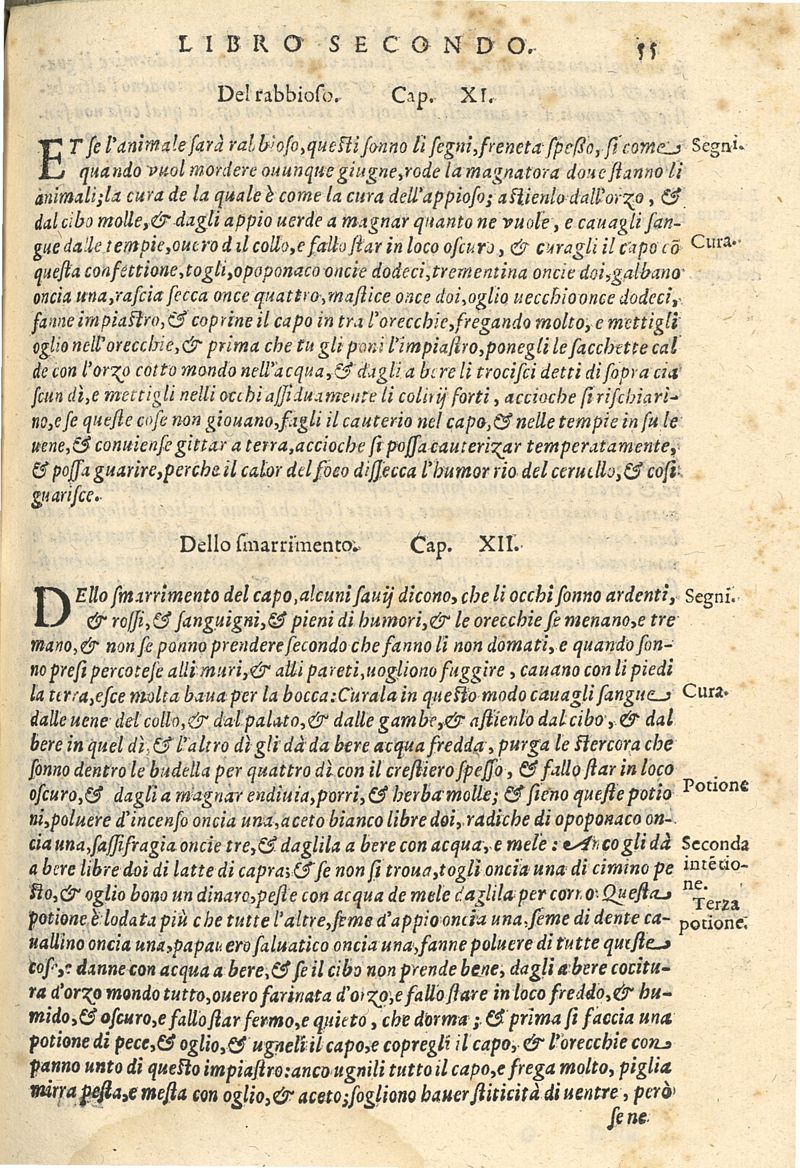 LIBRO SECONDO. 55
Del rabbioso. Cap. XI.
ET se l'animale sarà rabbioso, questi sonno li segni, freneta spesso, si come Segni.
quando vuol mordere ouunque giugne, rode la magnatora doue stanno li
animali; la cura de la quale è come la cura dell'appioso; astienlo dall'orzo, &
dal cibo molle, & dagli appio uerde a magnar quanto ne vuole, e cauagli san-
gue dalle tempie, ouero dal collo, e fallo star in loco oscuro, & curagli il capo cō Cura.
questa confettione, togli, opoponaco oncie dodeci, trementina oncie doi, galbano
oncia una, rascia secca once quattro, mastice once doi, oglio uecchio once dodeci,
fanne impiastro, & coprine il capo in tra l'orecchie, fregando molto, e mettigli
oglio nell'orecchie, & prima che tu gli poni l'impiastro, ponegli le sacchette cal
de con l'orzo cotto mondo nell'acqua, & dagli a bere li trocisci detti di sopra cia
scun dì, e mettigli nelli occhi assiduamente li colirij forti, accioche si rischiari-
no, e se queste cose non giouano, fagli il cauterio nel capo, & nelle tempie in su le
uene, & conuiense gittar a terra, accioche si possa cauterizar temperatamente,
& possa guarire, perche il calor del foco dissecca l'humor rio del ceruello, & così
guarisce.
Dello smarrimento. Cap. XII.
DEllo smarrimento del capo, alcuni sauij dicono, che li occhi sonno ardenti, Segni.
& rossi, & sanguigni, & pieni di humori, & le orecchie se menano, e tre
mano, & non se ponno prendere secondo che fanno li non domati, e quando son-
no presi percotese alli muri, & alli pareti, uogliono fuggire, cauano con li piedi
la terra, esce molta baua per la bocca: Curala in questo modo cauagli sangue Cura.
dalle uene del collo, & dal palato, & dalle gambe, & astienlo dal cibo, & dal
bere in quel dì, & l'altro dì gli dà da bere acqua fredda, purga le stercora che
sonno dentro le budella per quattro dì con il crestiero spesso, & fallo star in loco
oscuro, & dagli a magnar endiuia, porri, & herba molle; & sieno queste potio Potione
ni, poluere d'incenso oncia una, aceto bianco libre doi, radiche di opoponaco on-
cia una, sassifragia oncie tre, & daglila a bere con acqua, e mele: Anco gli dà Seconda
a bere libre doi di latte di capra; & se non si troua, togli oncia una di cimino pe intētio-
sto, & oglio bono un dinaro, peste con acqua de mele daglila per corno. Questa ne.
Terza
potione è lodata più che tutte l'altre, seme d'appio oncia una, seme di dente ca- potione.
uallino oncia una, papauero saluatico oncia una, fanne poluere di tutte queste
cose, e danne con acqua a bere, & se il cibo non prende bene, dagli a bere cocitu-
ra d'orzo mondo tutto, ouero farinata d'orzo, e fallo stare in loco freddo, & hu-
mido, & oscuro, e fallo star fermo, e quieto, che dorma; & prima si faccia una
potione di pece, & oglio, & ugneli il capo, e copregli il capo, & l'orecchie con
panno unto di questo impiastro: anco ugnili tutto il capo, e frega molto, piglia
mirra pesta, e mesta con oglio, & aceto; sogliono hauer stiticità di uentre, però
se ne